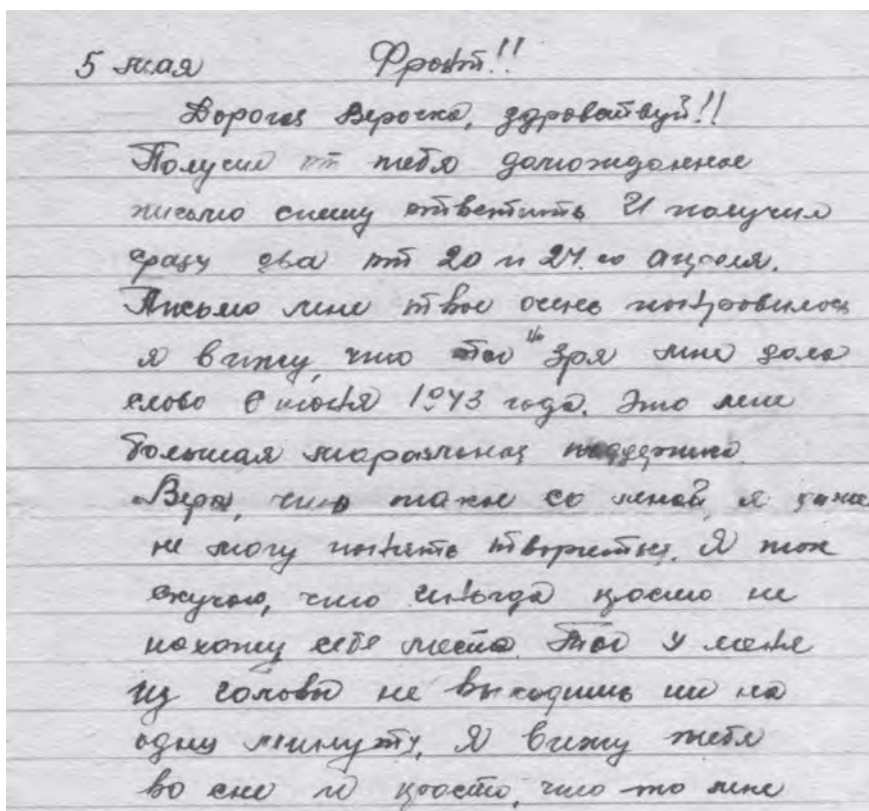 5 мая Фронт!!
Дорогая Верочка, здравствуй!!
Получил от тебя долгожданное
письмо спешу ответить И получил
сразу два от 20 и 24.го апреля.
Письмо мне твое очень понравилось
я вижу, что ты не зря мне дала
слово 6 июня 1943 года. Это мне
большая моральная поддержка
Вера, что такое со мной, я даже
не могу понять творится. Я так
скучаю, что иногда просто не
нахожу себе места. Ты у меня
из головы не выходишь ни на
одну минуту, Я вижу тебя
во сне и просто, что-то мне